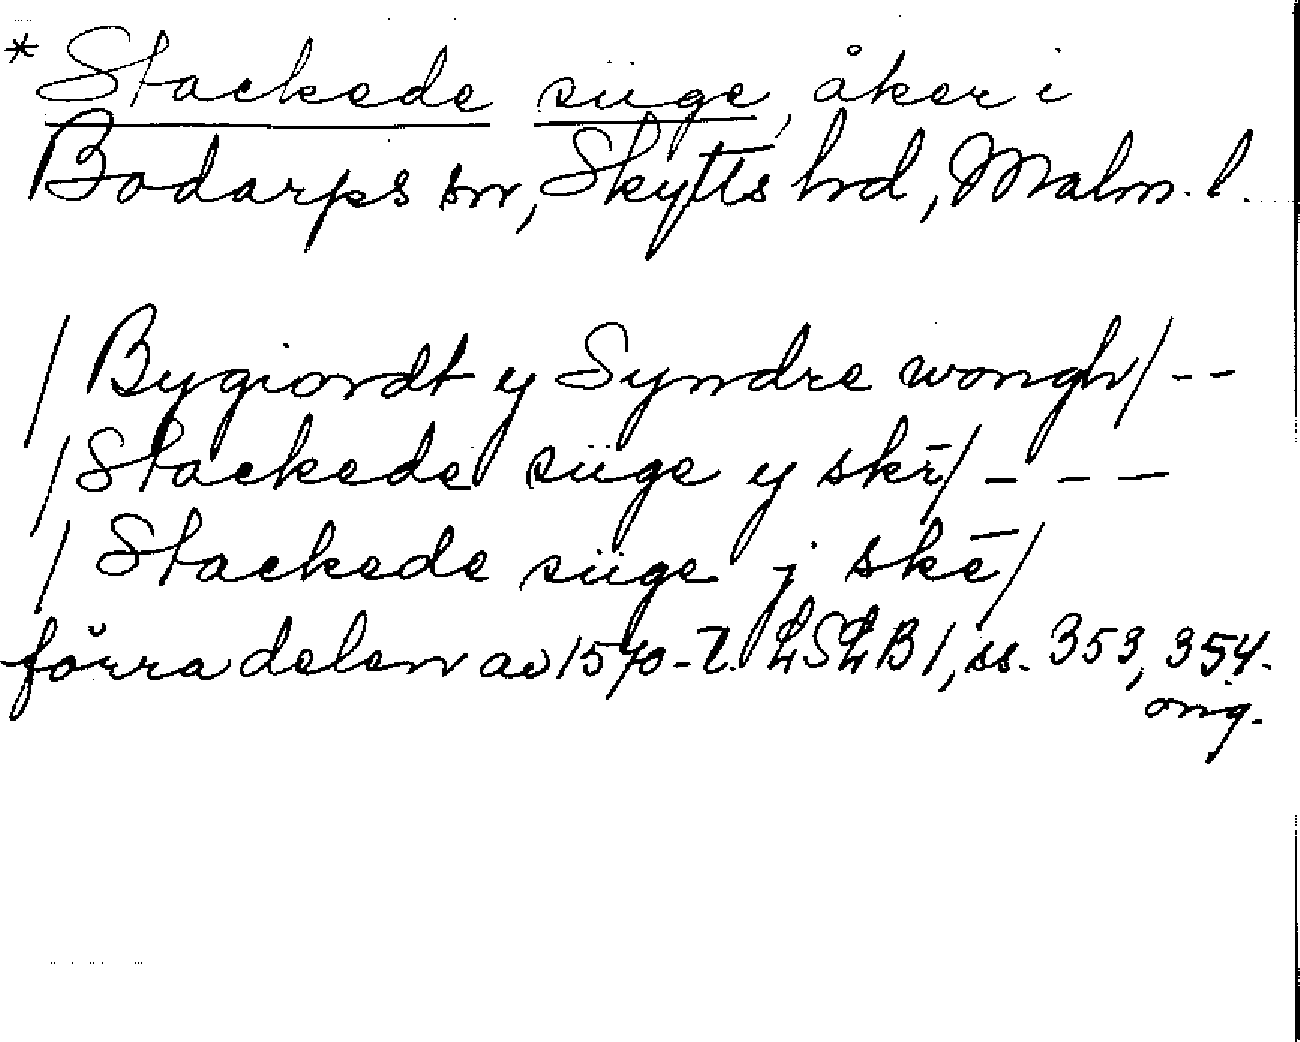 * Stackede süge, åker i
Bodarps sn, Skytts hd, Malm. l.
/ Bygiordt y Syndre wongh / - -
/ Stackede süge y skē / - - -
/ Stackede süge j skē /
förra delen av 1570-t. LSLB 1, ss. 353, 354.
orig.